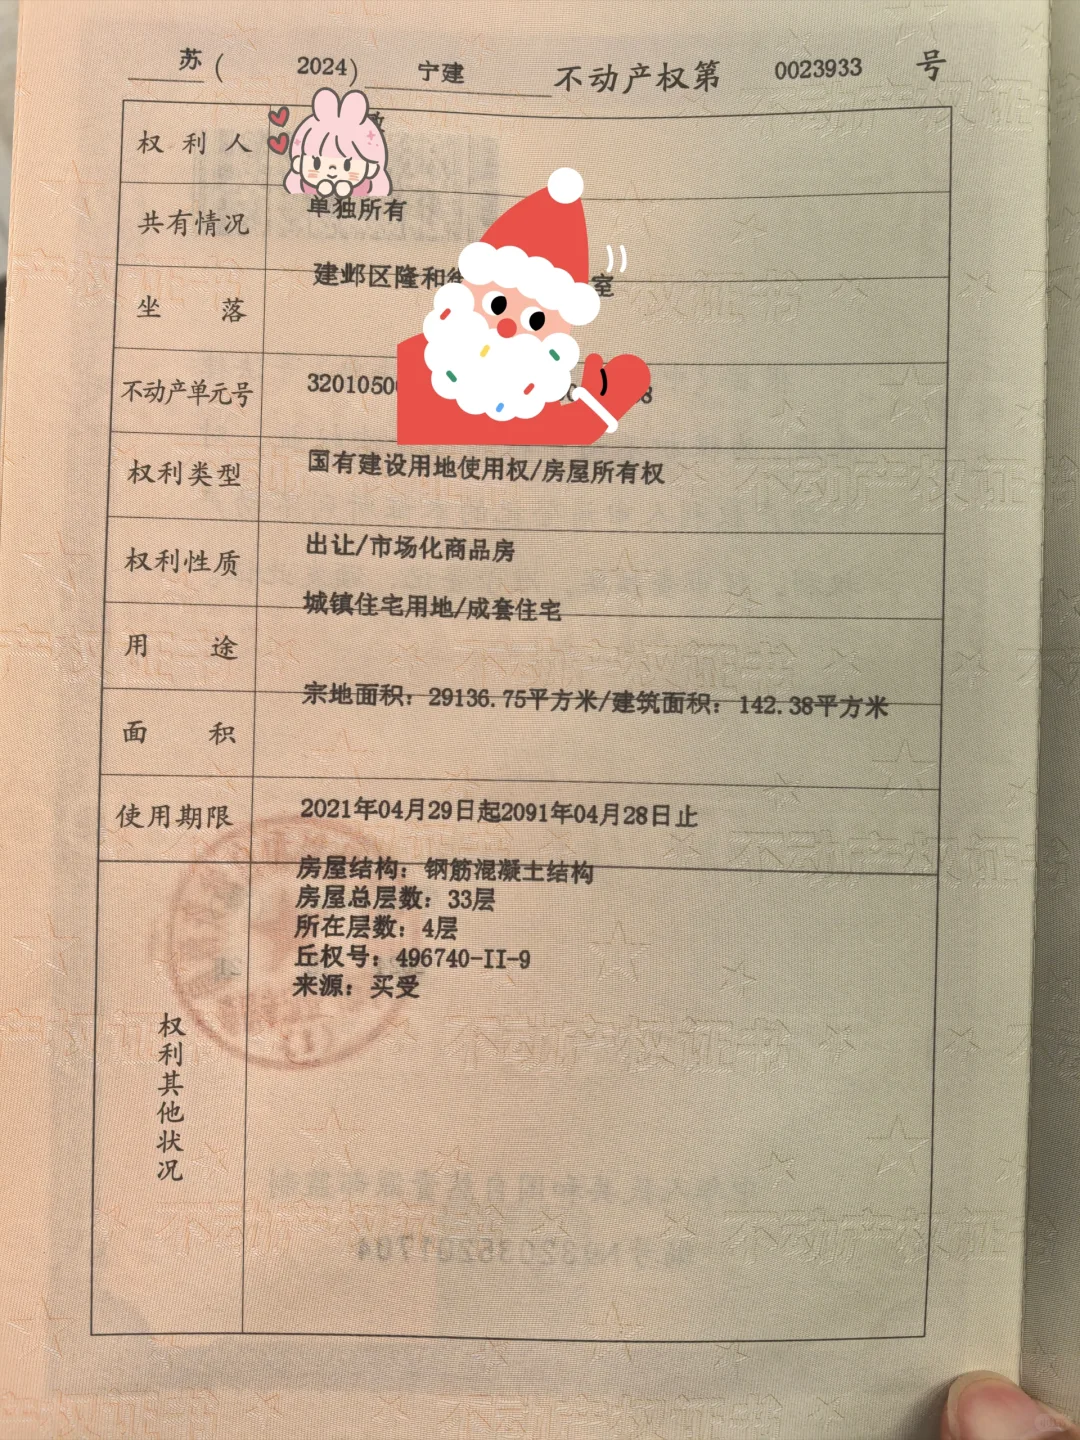 苏（2024）宁建不动产权第0023933号
权利人
共有情况 单独所有
坐落 建邺区隆和 室
不动产单元号 3201050 8
权利类型 国有建设用地使用权/房屋所有权
权利性质 出让/市场化商品房
用途 城镇住宅用地/成套住宅
面积 宗地面积：29136.75平方米/建筑面积：142.38平方米
使用期限 2021年04月29日起2091年04月28日止
权利其他状况
房屋结构：钢筋混凝土结构
房屋总层数：33层
所在层数：4层
丘权号：496740-II-9
来源：买受